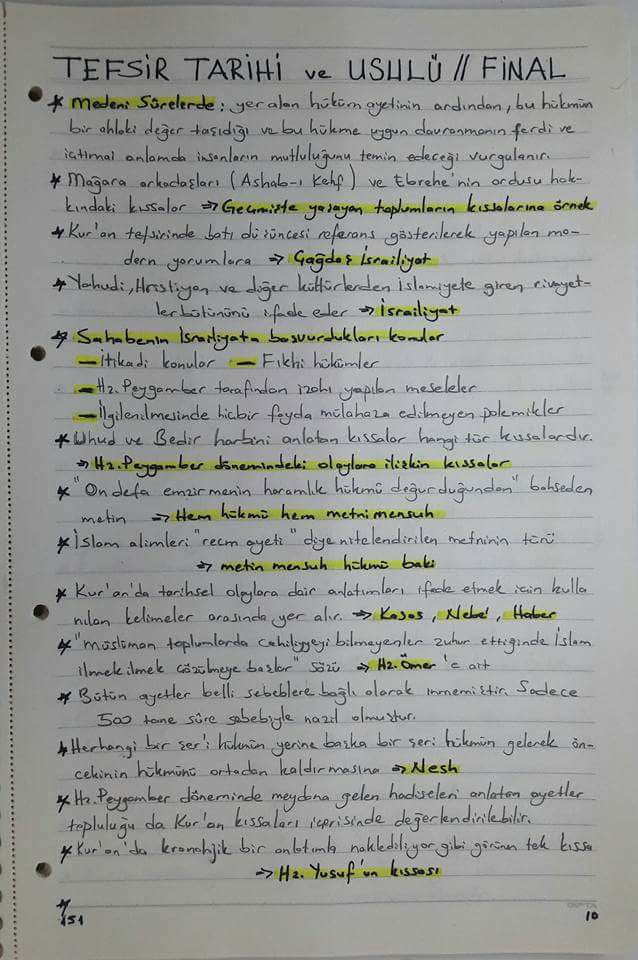 TEFSİR TARİHİ ve USULÜ // FİNAL
* Medeni Sûrelerde; yer alan hüküm ayetinin ardından, bu hükmün
bir ahlaki değer taşıdığı ve bu hükme uygun davranmanın ferdi ve
içtimai anlamda insanların mutluluğunu temin edeceği vurgulanır.
* Mağara arkadaşları (Ashab-ı Kehf) ve Ebrehe'nin ordusu hak-
kındaki kıssalar ⇒ Geçmişte yaşayan toplumların kıssalarına örnek
* Kur'an tefsirinde batı düşüncesi referans gösterilerek yapılan mo-
dern yorumlara ⇒ Çağdaş İsrailiyat
* Yahudi, Hristiyan ve diğer kültürlerden İslamiyete giren rivayet-
ler bütününü ifade eder ⇒ İsrailiyat
* Sahabenin İsrailiyata başvurdukları konular
- İtikadi konular - Fıkhi hükümler
- Hz. Peygamber tarafından izahı yapılan meseleler
- İlgilenilmesinde hiçbir fayda mülahaza edilmeyen polemikler
* Uhud ve Bedir harbini anlatan kıssalar hangi tür kıssalardır.
⇒ Hz. Peygamber dönemindeki olaylara ilişkin kıssalar
* "On defa emzirmenin haramlık hükmü doğurduğundan" bahseden
metin ⇒ Hem hükmü hem metni mensuh
* İslam alimleri "recm ayeti" diye nitelendirilen metninin türü
⇒ metin mensuh hükmü baki
* Kur'an'da tarihsel olaylara dair anlatımları ifade etmek için kulla
nılan kelimeler arasında yer alır. ⇒ Kasas, Nebe', Haber
* "Müslüman toplumlarda cahiliyyeyi bilmeyenler zuhur ettiğinde İslam
ilmek ilmek çözülmeye başlar" sözü ⇒ Hz. Ömer'e ait
* Bütün ayetler belli sebeblere bağlı olarak inmemiştir. Sadece
500 tane sûre sebebiyle nazil olmuştur.
* Herhangi bir şer'i hükmün yerine başka bir şeri hükmün gelerek ön-
cekinin hükmünü ortadan kaldırmasına ⇒ Nesh
* Hz. Peygamber döneminde meydana gelen hadiseleri anlatan ayetler
topluluğu da Kur'an kıssaları içerisinde değerlendirilebilir.
* Kur'an'da kronolojik bir anlatımla naklediliyor gibi görünen tek kıssa
⇒ Hz. Yusuf'un kıssası
151
10